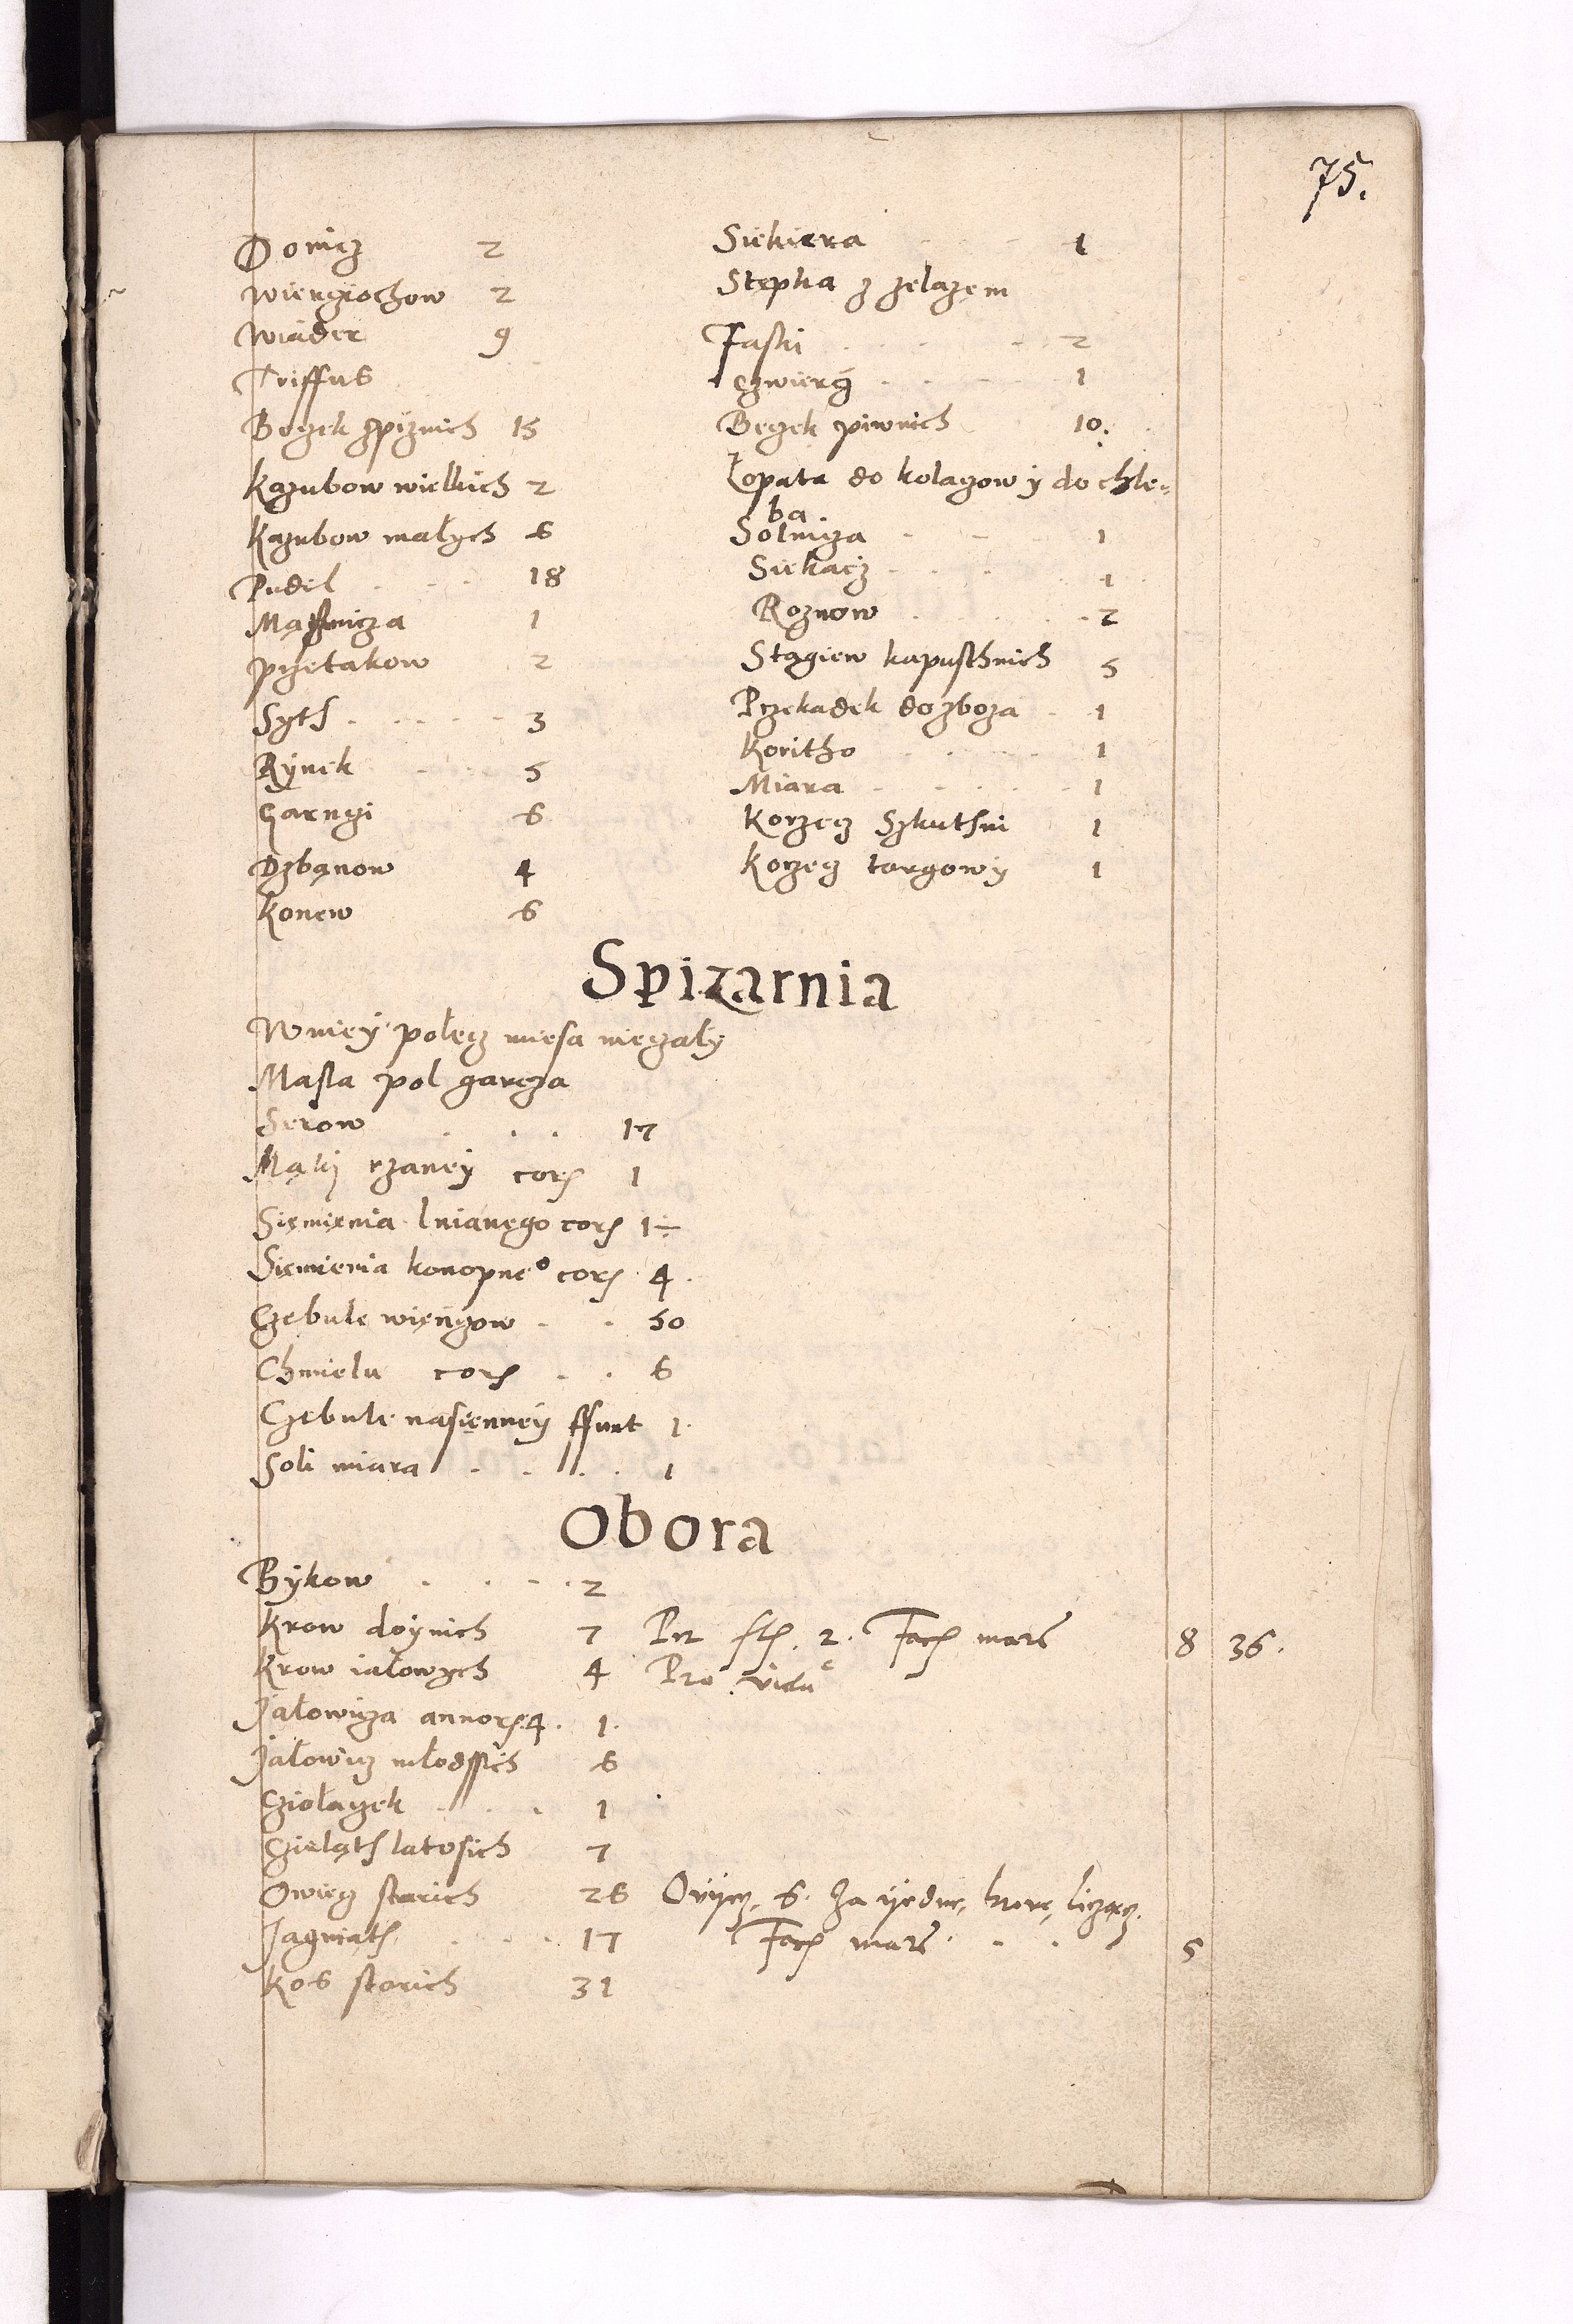 75.
Donicz 2
Wiengiochow 2
Wiader 9
Triffus
Beczek spiznich 15
Kazubow wielkich 2
Kazubow małych 6
Pudel 18
1
Pczetakow 2
Syth 3
Rynek 5
Garngi 6
Dzbanow 4
Konew 6
Siekiera 1
Stepka z zelazem
Faski 2
Czwierg 1
Beczek piwnich 10.
Łopata do kolaczow y do chle-
ba
Solnicza 1
Siekacz 1
Roznow 2
Stągiew kapusthnich 5
Przekadek do zboza 1
Koritho 1
Miara 1
Korzecz Szkuthni 1
Korzecz targowy 1
Spizarnia
W niey połecz miesa nieczały
Masla pol garcza
Serow 17
Mąki rzaney cor 1
Siemienia lnianego cor 1÷
Siemienia konopneo cor 4.
Czebule wienczow 50
Chmielu cor 6
Czebule nasienney ffunt 1.
Soli miara 1
Obora
Bykow 2
Krow doynich 7 Per 2. Fac marc 8 36.
Krow iałowych 4 Pro
Jałowicza annor 4. 1.
Jałowicz młodssich 6
Cziołaczek 1
Czieląth latosich 7
Owiecz starich 26 Owyecz 6. Za yedne krowe liczącz.
Jagniath 17 Fac marc 5
Koz starich 31